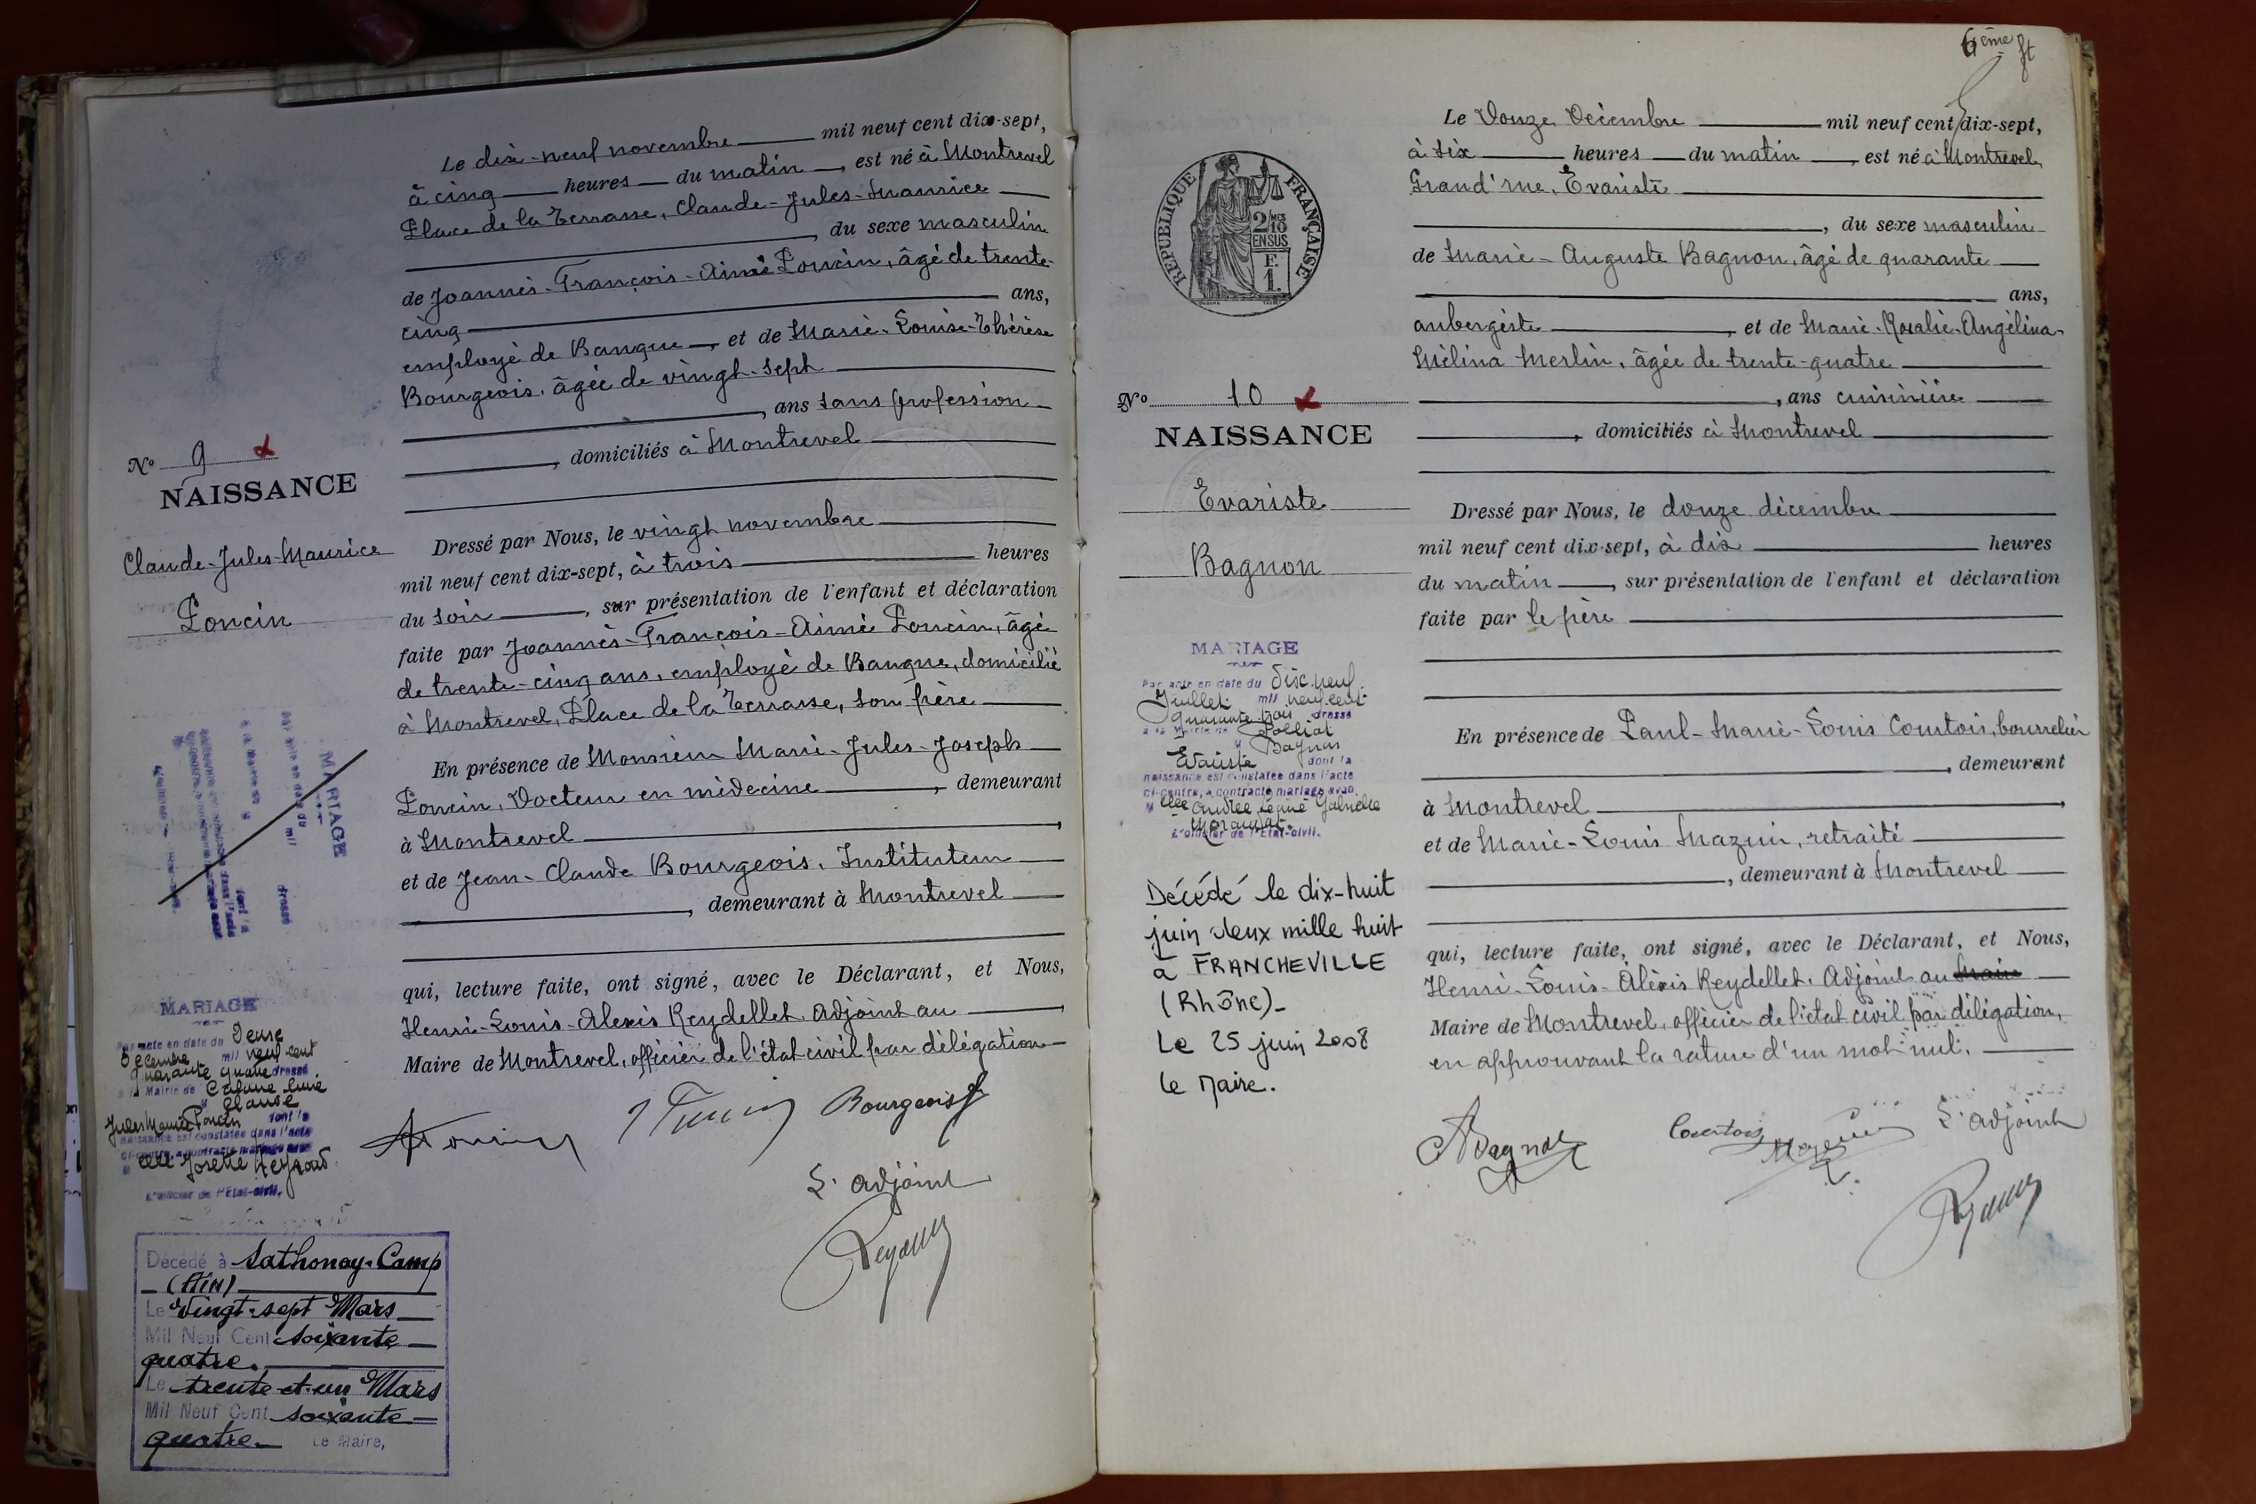 Le dix-neuf novembre mil neuf cent dix-sept,
à cinq heures du matin, est né à Montrevel
Place de la Terrasse, Claude-Jules-Maurice
, du sexe masculin
de Joannès-François-Aimé Poncin, âgé de trente-
cinq ans,
employé de Banque, et de Marie-Louise-Thérèse
Bourgeois, âgée de vingt-sept
, ans sans profession
, domiciliés à Montrevel
No 9
NAISSANCE
Claude-Jules-Maurice
Poncin
Dressé par Nous, le vingt novembre
mil neuf cent dix-sept, à trois heures
du soir, sur présentation de l'enfant et déclaration
faite par Joannès-François-Aimé Poncin, âgé
de trente-cinq ans, employé de Banque, domicilié
à Montrevel, Place de la Terrasse, son père
En présence de Monsieur Marie-Jules-Joseph
Poncin, Docteur en médecine, demeurant
à Montrevel,
et de Jean-Claude Bourgeois, Instituteur
, demeurant à Montrevel
qui, lecture faite, ont signé, avec le Déclarant, et Nous,
Henri-Louis-Alexis Reydellet, Adjoint au
Maire de Montrevel, officier de l'état civil par délégation
Bourgeois
L'adjoint
MARIAGE
Par acte en date du
mil
dressé
à la Mairie de
M
dont la
MARIAGE
Par acte en date du Deux
Décembre mil neuf cent
quarante quatre dressé
à la Mairie de
M Claude
Jules Maurice Poncin dont la
naissance est constatée dans l'acte
ci-contre, a contracté mariage avec
M elle Josette
L'officier de l'Etat-civil.
Décédé à Sathonay-Camp
(AIN)
Le Vingt-sept Mars
Mil Neuf Cent soixante
quatre.
Le trente et un Mars
Mil Neuf Cent soixante
quatre. Le Maire,
6ème ft
Le Douze Décembre mil neuf cent dix-sept,
à six heures du matin, est né à Montrevel,
Grand'rue, Evariste
, du sexe masculin
de Marie-Auguste Bagnon, âgé de quarante
ans,
aubergiste, et de Marie-Rosalie-Angélina-
Mélina Merlin, âgée de trente-quatre
, ans cuisinière
, domiciliés à Montrevel
RÉPUBLIQUE FRANÇAISE
2/10 MES
EN SUS
F.
1.
No 10
NAISSANCE
Evariste
Bagnon
Dressé par Nous, le douze décembre
mil neuf cent dix-sept, à dix heures
du matin, sur présentation de l'enfant et déclaration
faite par le père
En présence de Paul-Marie-Louis Courtois, bourrelier
, demeurant
à Montrevel,
et de Marie-Louis Mazuir, retraité
, demeurant à Montrevel
qui, lecture faite, ont signé, avec le Déclarant, et Nous,
Henri-Louis-Alexis Reydellet, Adjoint au Maire
Maire de Montrevel, officier de l'état civil par délégation,
en approuvant la rature d'un mot nul.
Bagnon
Courtois
L'adjoint
MARIAGE
Par acte en date du Dix neuf
Juillet mil neuf cent
quarante trois dressé
à la Mairie de Polliat
M Bagnon
Evariste dont la
naissance est constatée dans l'acte
ci-contre, a contracté mariage avec
M elle Andrée Gabrielle
L'officier de l'Etat-civil.
Décédé le dix-huit
juin deux mille huit
à FRANCHEVILLE
(Rhône)_
Le 25 juin 2008
Le Maire.